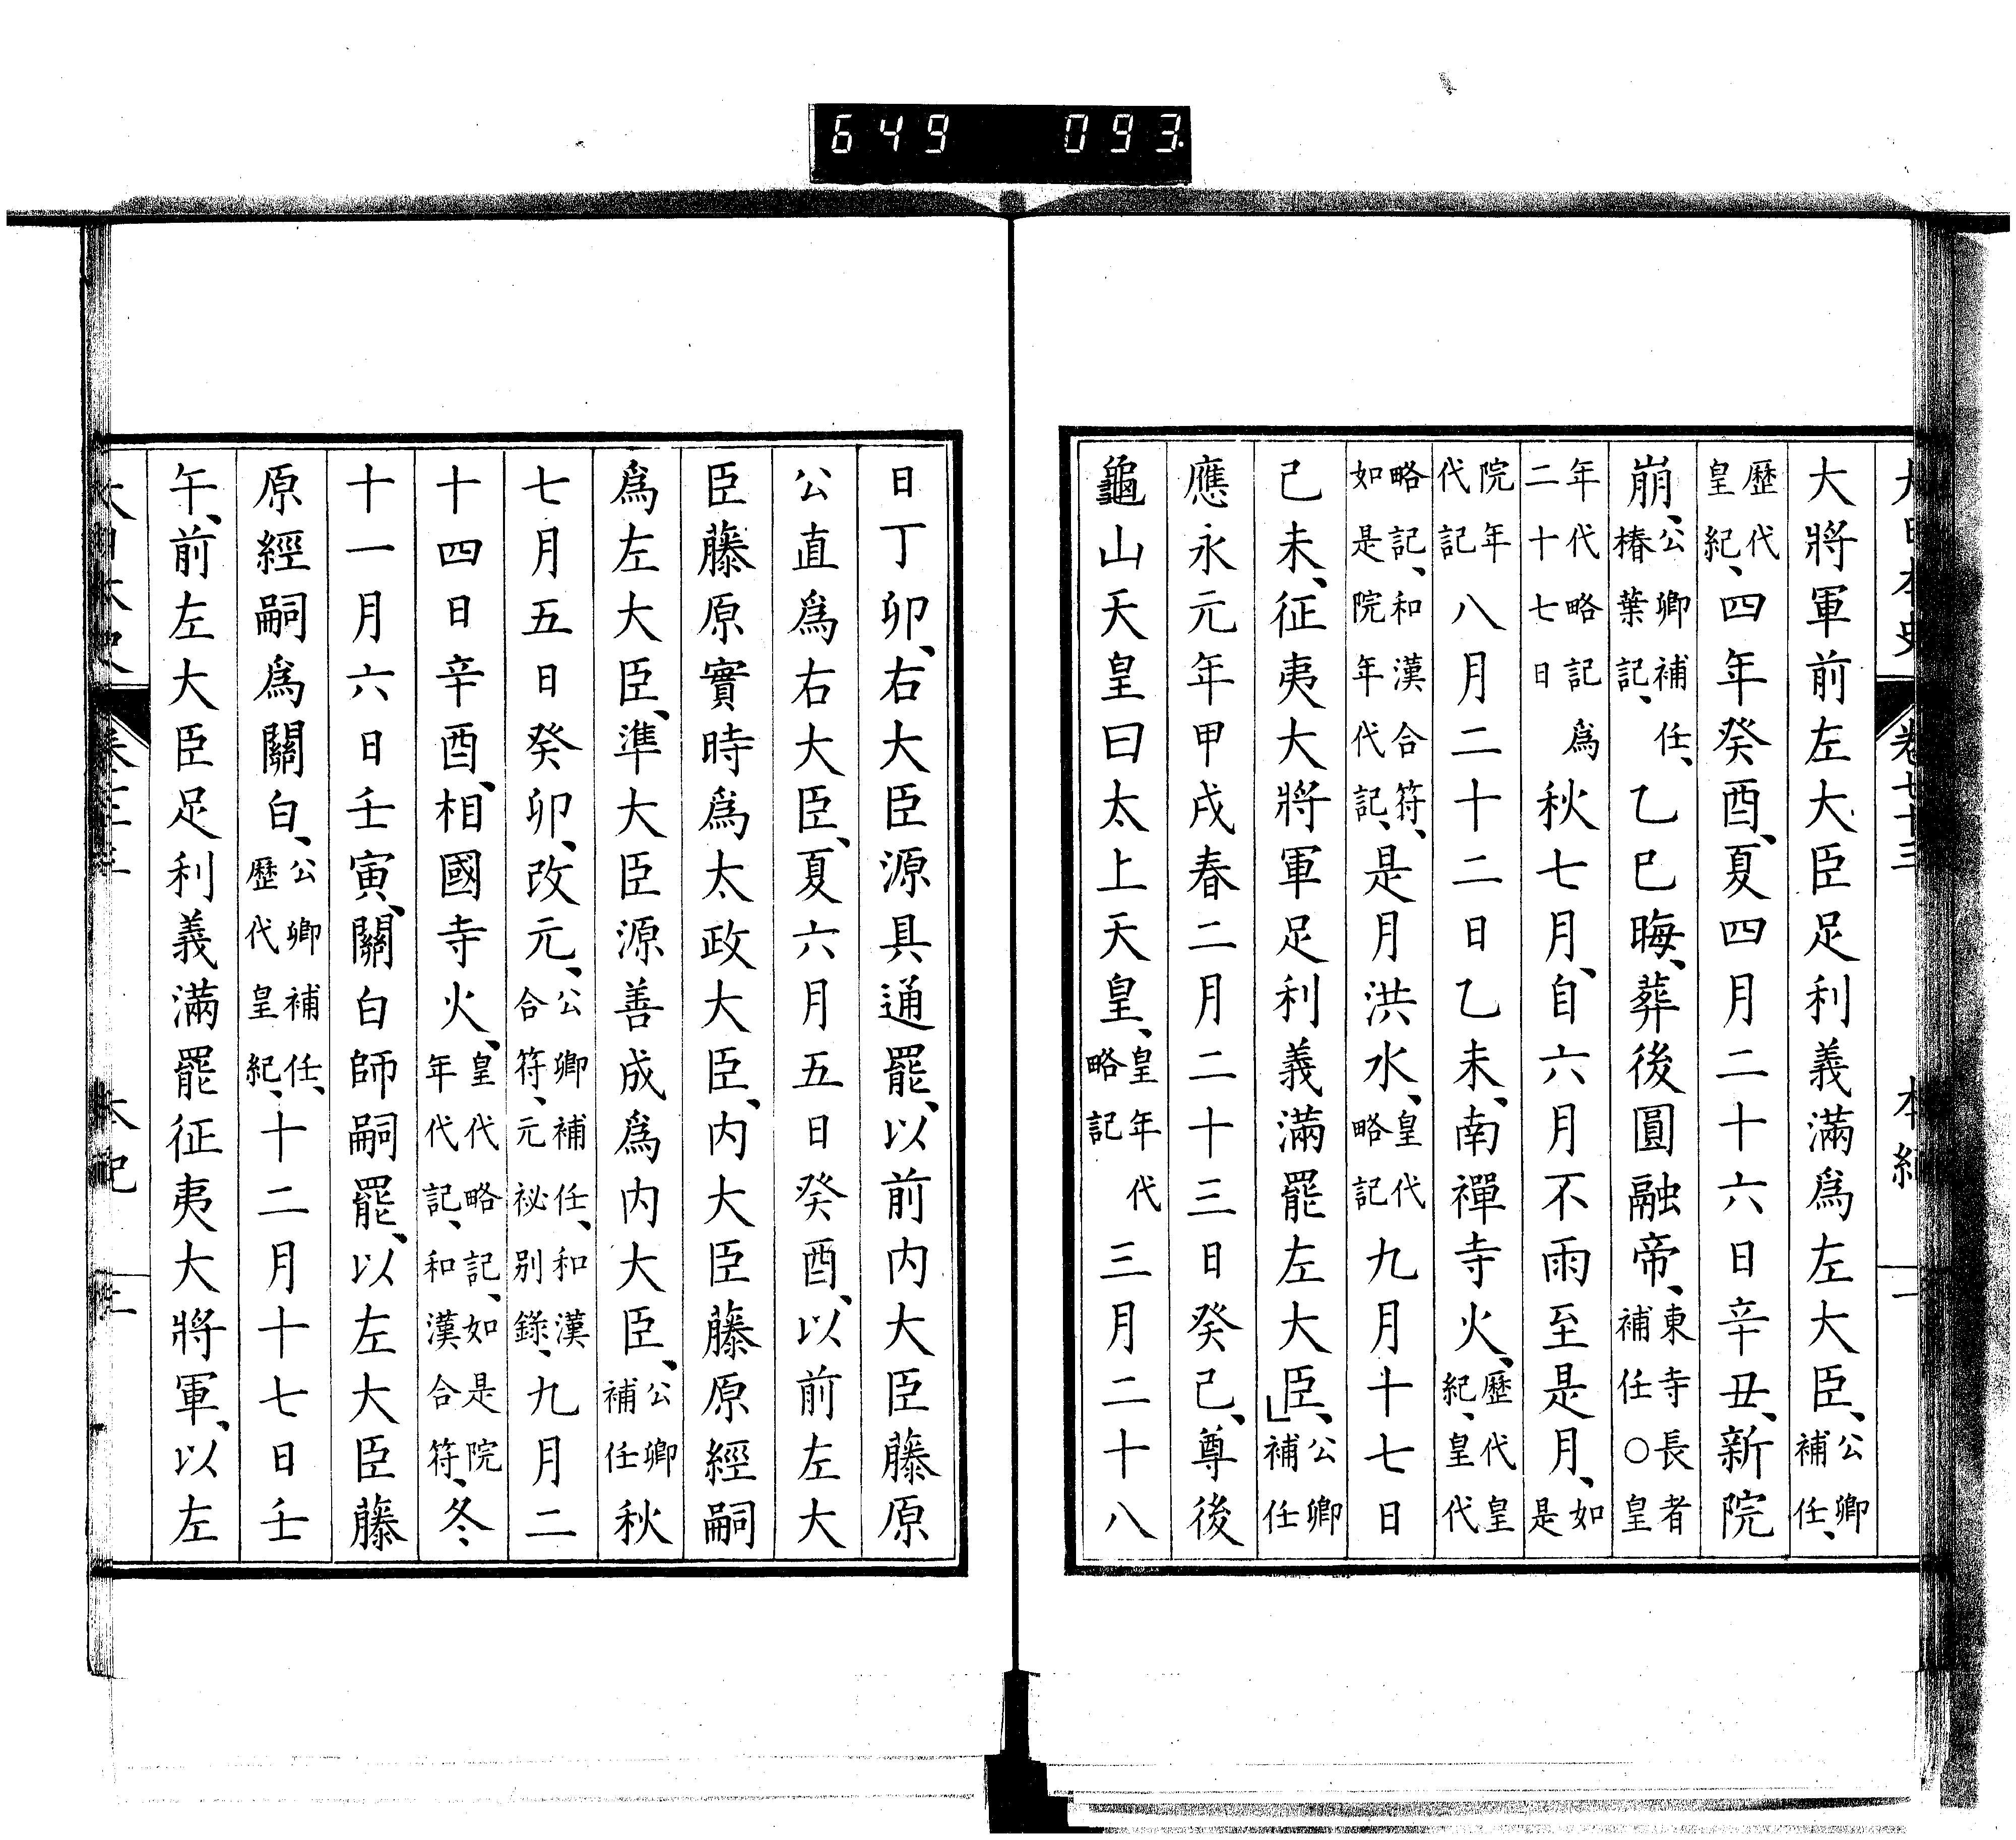 649 093.
大日本史 卷七十三 本紀 一
大將軍前左大臣足利義滿爲左大臣、公卿補任、
歷代皇紀、四年癸酉、夏四月二十六日辛丑、新院
崩、公卿補任、椿葉記、乙巳晦、葬後圓融帝、東寺長者補任○皇
年代略記爲二十七日秋七月、自六月不雨至是月、如是
院年代記八月二十二日乙未、南禪寺火、歷代皇紀、皇代
略記、和漢合符、如是院年代記、是月洪水、皇代略記九月十七日
己未、征夷大將軍足利義滿罷左大臣、」公卿補任
應永元年甲戌春二月二十三日癸己、尊後
龜山天皇曰太上天皇、皇年代略記三月二十八
日丁卯、右大臣源具通罷、以前内大臣藤原
公直爲右大臣、夏六月五日癸酉、以前左大
臣藤原實時爲太政大臣、内大臣藤原經嗣
爲左大臣、準大臣源善成爲内大臣、公卿補任秋
七月五日癸卯、改元、公卿補任、和漢合符、元祕別錄、九月二
十四日辛酉、相國寺火、皇代略記、如是院年代記、和漢合符、冬
十一月六日壬寅、關白師嗣罷、以左大臣藤
原經嗣爲關白、公卿補任、歷代皇紀、十二月十七日壬
午、前左大臣足利義滿罷征夷大將軍、以左